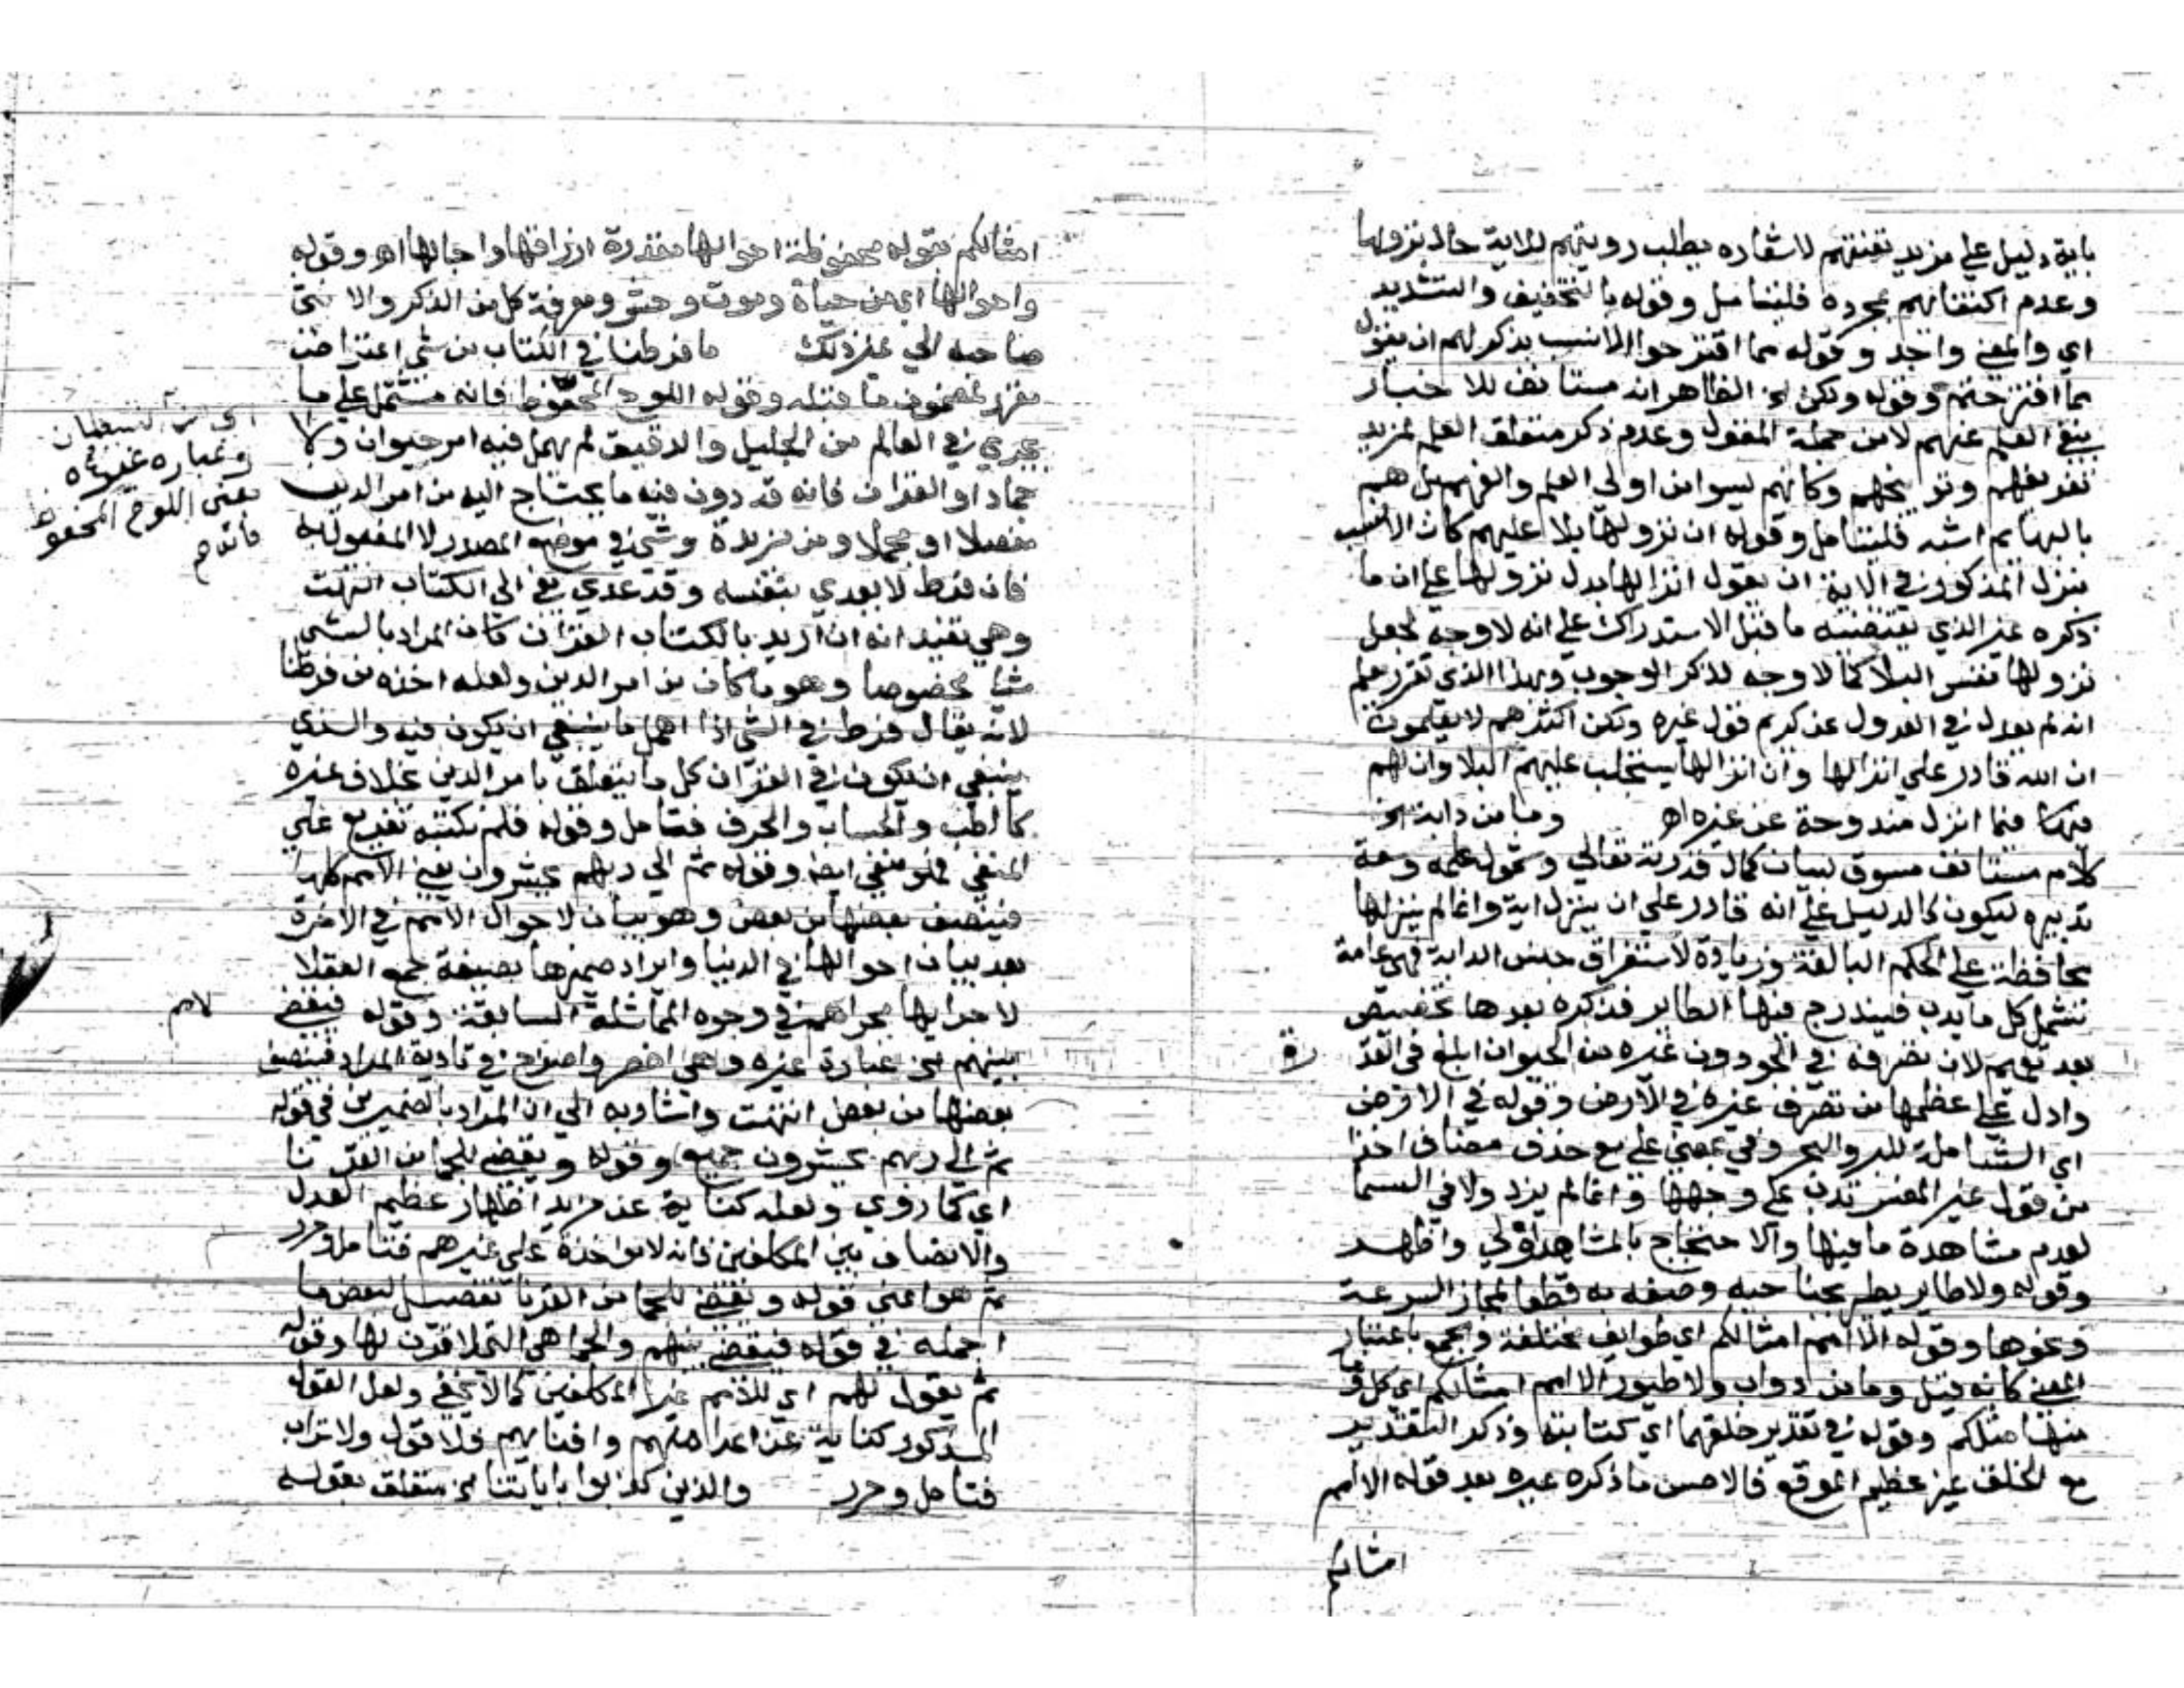 باية دليل علي مزيد تعنتهم لاشعاره بطلب رويتهم للاية حال نزولها
وعدم اكتفائهم بمجرده فليتامل وقوله بالتخفيف والتشديد
اي والمعني واحد وقوله مما اقترحوا الانسب بذكر لهم ان يقول
مما اقترحتم وقوله ولكن الخ الظاهر انه مستانف للاخبار
بنفي العلم عنهم لا من جملة المقول وعدم ذكر متعلق العلم لمزيد
تقريعهم وتوابيخهم وكانهم ليسوا من اولي العلم والفهم بل هم
بالبهايم اشبه فليتامل وقوله ان نزولها بلا عليهم كان الانسب
بنزل المذكور في الاية ان يقول انزالها بدل نزولها علي ان ما
ذكره غير الذي يقتضيه ما قبل الاستدراك علي انه لا وجه لجعل
نزولها نفس البلا كما لا وجه لذكر الوجوب وبهذا الذي تقرر علم
انه لم يعدل في العدول عنه كريم قول غيره ولكن اكثرهم لا يعلمون
ان الله قادر علي انزالها وان انزالها يستجلب عليهم البلا وان لهم
فيما انزل مندوحة عن غيره اهـ وما من دابة الخ
كلام مستانف مسوق لبيان كمال قدرته تعالي وشمول علمه وسعة
تدبيره ليكون كالدليل علي انه قادر علي ان ينزل اية وانما لم ينزلها
محافظة علي الحكم البالغة وزيادة لاستغراق جنس الدابة فهي عامة
تشمل كل ما يدب فيندرج فيها الطاير فذكره بعدها تخصيص
بعد تعميم لان تصرفه في الجو دون غيره من الحيوان ابلغ في القد
رة
وادل علي عظمها من تصرف غيره في الارض وقوله في الارض
اي الشاملة للبر والبحر وفي بمعني علي مع حذف مضاف اخذا
من قول غير المفسر تدب علي وجهها وانما لم يزد ولا في السما
لعدم مشاهدة ما فيها والاحتجاج بالمشاهد اولي واظهر
وقوله ولا طاير يطير بجناحيه وصفه به قطعا لمجاز السرعة
ونحوها وقوله الا امم امثالكم اي طوايف مختلفة وجمع باعتبار
المعني كانه قيل وما من دواب ولا طيور الا امم امثالكم اي كل
منها مثلكم وقوله في تقدير خلقها اي كتابته وذكر التقدير
مع الخلق غير عظيم الموقع فالاحسن ما ذكره غيره بعد قوله الا امم
امثالكم
امثالكم بقوله محفوظة احوالها مقدرة ارزاقها واجالها اهـ وقوله
واحوالها اي من حياة وموت وحشر ومعرفة كل من الذكر والانثي
صاحبه الي غير ذلك ما فرطنا في الكتاب من شي اعتراض
مقرر لمضمون ما قبله وقوله اللوح المحفوظ فانه مشتمل علي ما
يجري في العالم من الجليل والدقيق لم يهمل فيه امر حيوان ولا
جماد او القران فانه قد دون فيه ما يحتاج اليه من امر الدين
مفصلا او مجملا ومن مزيدة وشي في موضع المصدر لا المفعول به
فان فرط لا يعدي بنفسه وقد عدي بفي الي الكتاب انتهت
وهي تفيد انه ان اريد بالكتاب القران كان المراد بالشي
شيا مخصوصا وهو ما كان من امر الدين ولعله اخذه من فرطنا
لانه يقال فرط في الشي اذا اهمل ما ينبغي ان يكون فيه والذي
ينبغي ان يكون في القران كل ما يتعلق بامر الدين بخلاف غيره
كالطب والحساب والحرف فتامل وقوله فلم نكتبه تفريع علي
المنفي فهو منفي ايضا وقوله ثم الي ربهم يحشرون يعني الامم كلها
فينصف بعضها من بعض وهو بيان لاحوال الامم في الاخرة
بعد بيان احوالها في الدنيا وايراد ضميرها بصيغة جمع العقلا
لاجرايها مجراهم في وجوه المماثلة السابقة وقوله فيقضي
بينهم الخ عبارة غيره وهي اخصر واصرح في تادية المراد فينصف
بعضها من بعض انتهت واشار به الي ان المراد بالضميرين في قوله
ثم الي ربهم يحشرون جميع وقوله ويقتص للجما من القرنا
اي كما روي ولعله كناية عن مزيد اظهار عظيم العدل
والانصاف بين المكلفين فانه لا مواخذة علي غيرهم فتامل وحرر
ثم هو اعني قوله ويقتص للجما من القرنا تفصيل لبعض ما
اجمله في قوله فيقضي بينهم والجما هي التي لا قرن لها وقوله
ثم يقول لهم اي للامم غير المكلفين كما لا يخفي ولعل القول
المذكور كناية عن اعدامهم وافنايهم فلا قول ولا تراب
فتامل وحرر والذين كذبوا باياتنا الخ متعلق بقوله
وعباره غيره
يعني اللوح المحفوظ
لامم